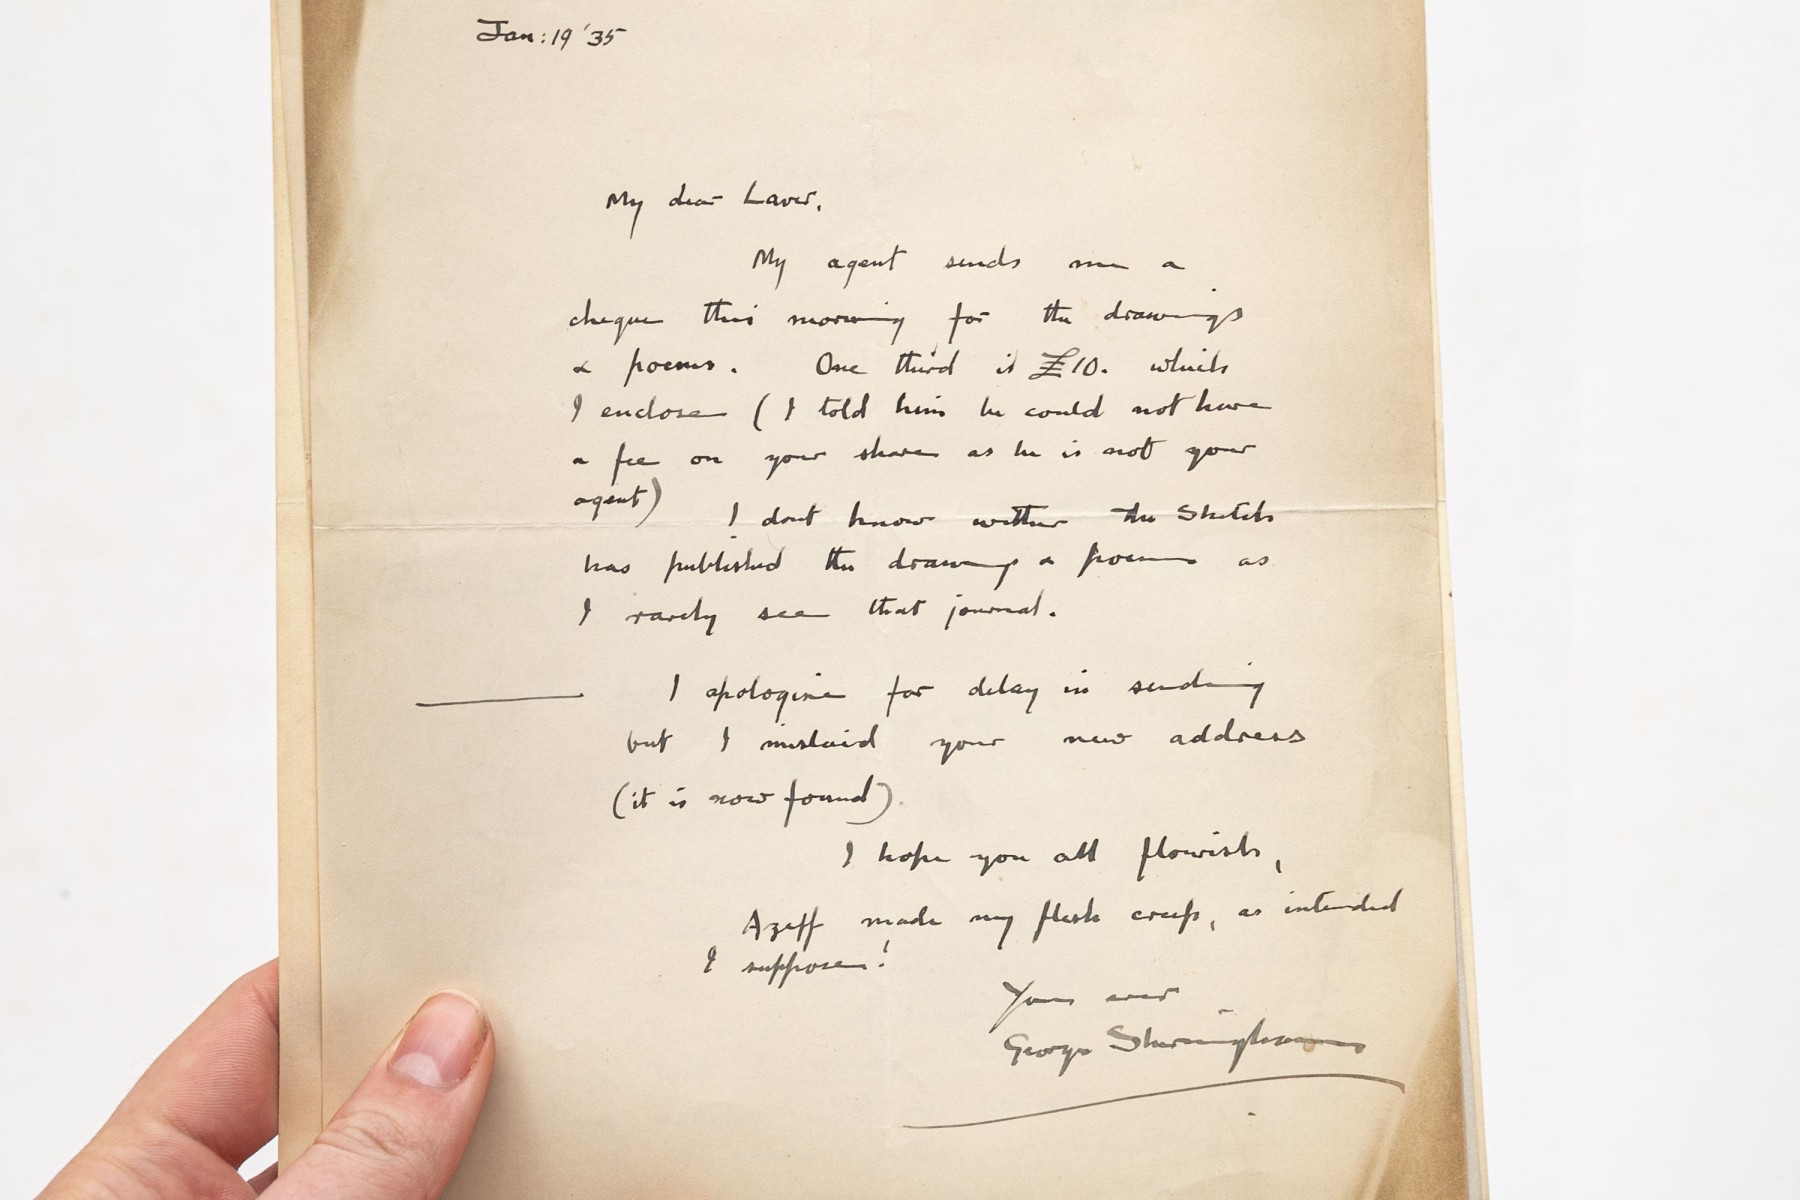 Jan: 19 '35
My dear Laver,
My agent sends me a
cheque this morning for the drawings
& poems. One third is £10. which
I enclose (I told him he could not have
a fee on your share as he is not your
agent)
I dont know wether the Sketch
has published the drawings & poems as
I rarely see that journal.
I apologise for delay in sending
but I mislaid your new address
(it is now found).
I hope you all flourish,
Azeff made my flesh creep, as intended
I suppose!
Yours ever
George Sheringham